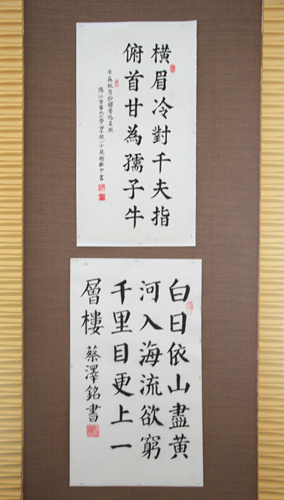 橫眉冷對千夫指
俯首甘為孺子牛
白日依山盡黃
河入海流欲窮
千里目更上一
層樓
蔡澤銘書